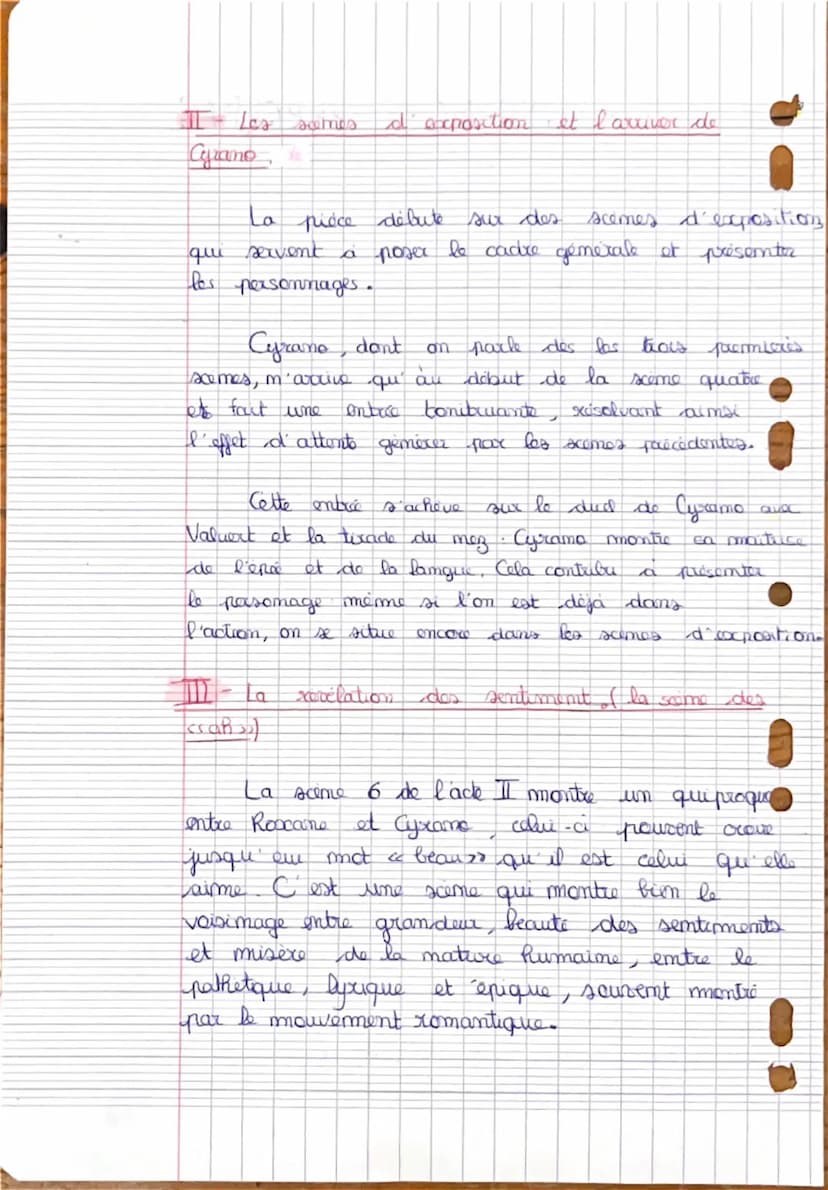 II - Les scènes d'exposition et l'arriver de
Cyrano.
La pièce débute sur des scènes d'exposition
qui servent à poser le cadre générale et présenter
les personnages.
Cyrano, dont on parle dès les trois premières
scènes, n'arrive qu'au début de la scène quatre
et fait une entrée tonitruante, résolvant ainsi
l'effet d'attente générer par les scènes précédentes.
Cette entrée s'achève sur le duel de Cyrano avec
Valvert et la tirade du nez. Cyrano montre sa maitrise
de l'épée et de la langue. Cela contribu à présenter
le personnage même si l'on est déjà dans
l'action, on se situe encore dans les scènes d'exposition.
III - La révélation des sentiment, (la scène des
<<ah>>)
La scène 6 de l'acte II montre un quiproquo
entre Roxane et Cyrano, celui-ci pouvent croire
jusqu'au mot « beau >> qu'il est celui qu'elle
aime. C'est une scène qui montre bien le
voisinage entre grandeur, beauté des sentiments
et misère de la nature humaine, entre le
pathétique, lyrique et épique, souvent montré
par le mouvement romantique.